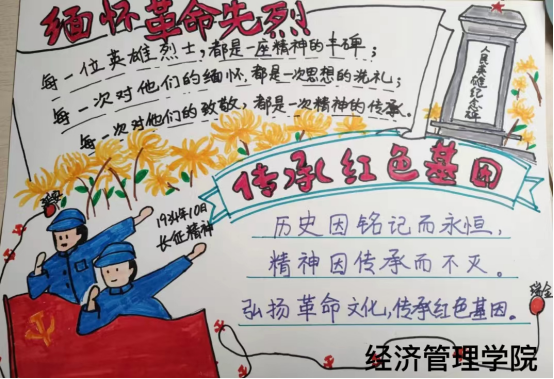 缅怀革命先烈
每一位英雄烈士，都是一座精神的丰碑；
每一次对他们的缅怀，都是一次思想的洗礼；
每一次对他们的致敬，都是一次精神的传承。
人民英雄纪念碑
传承红色基因
1934年10日
长征精神
历史因铭记而永恒，
精神因传承而不灭。
弘扬革命文化，传承红色基因。
瑞金
经济管理学院